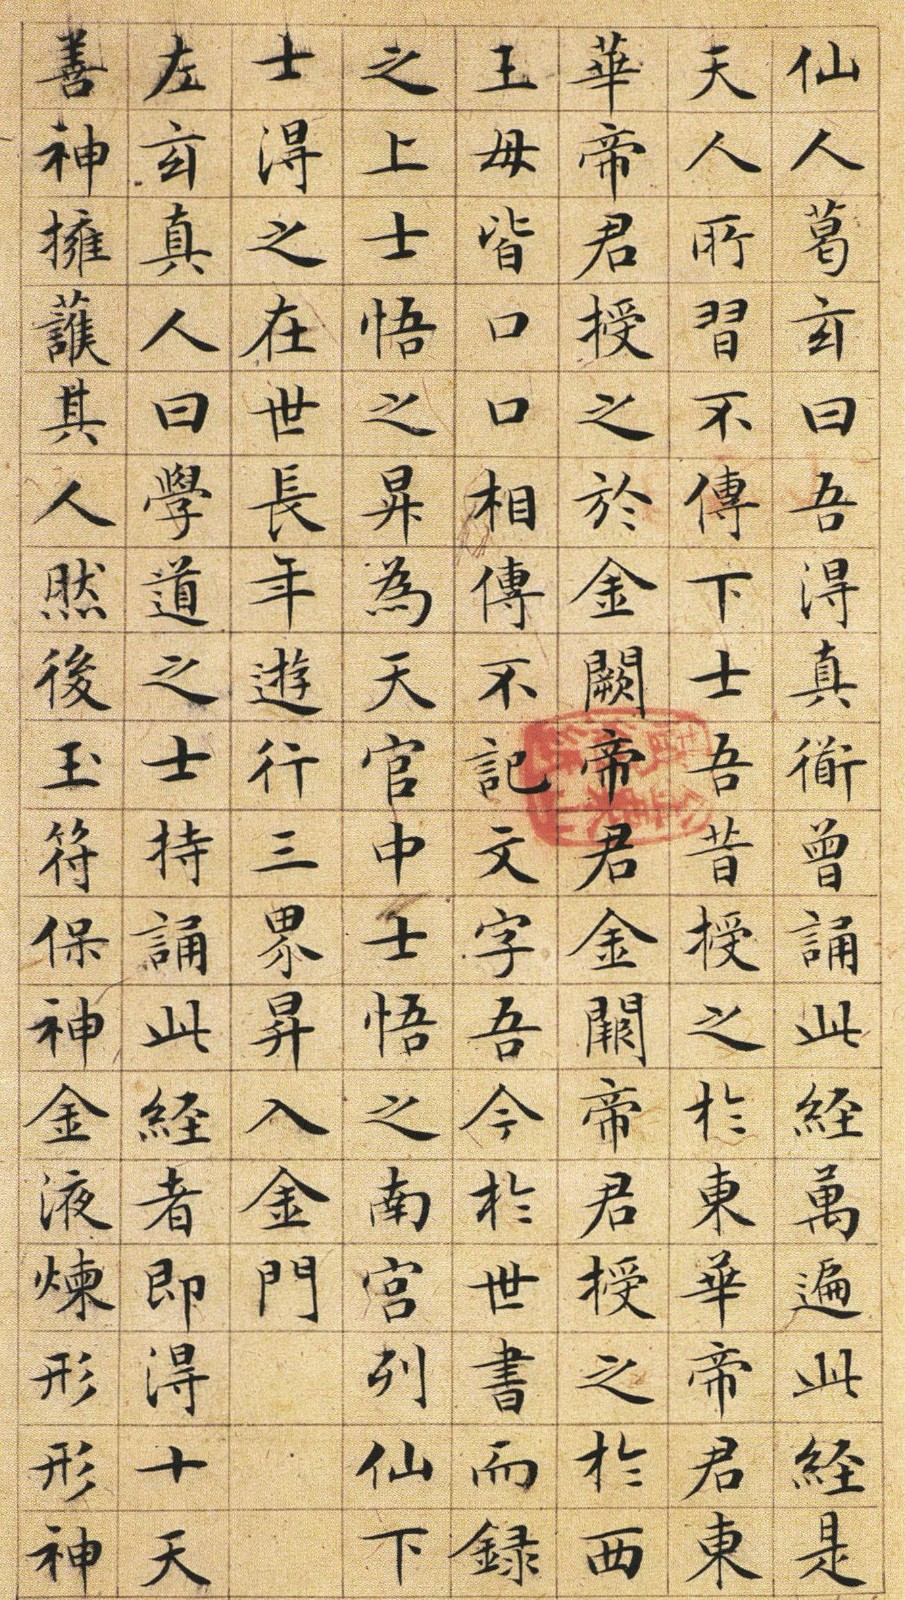 仙人葛玄曰吾得真衟曾誦此経萬遍此経是
天人所習不傳下士吾昔授之於東華帝君東
華帝君授之於金闕帝君金闕帝君授之於西
王母皆口口相傳不記文字吾今於世書而録
之上士悟之昇為天官中士悟之南宮列仙下
士得之在世長年遊行三界昇入金門
左玄真人曰學道之士持誦此経者即得十天
善神擁護其人然後玉符保神金液煉形形神